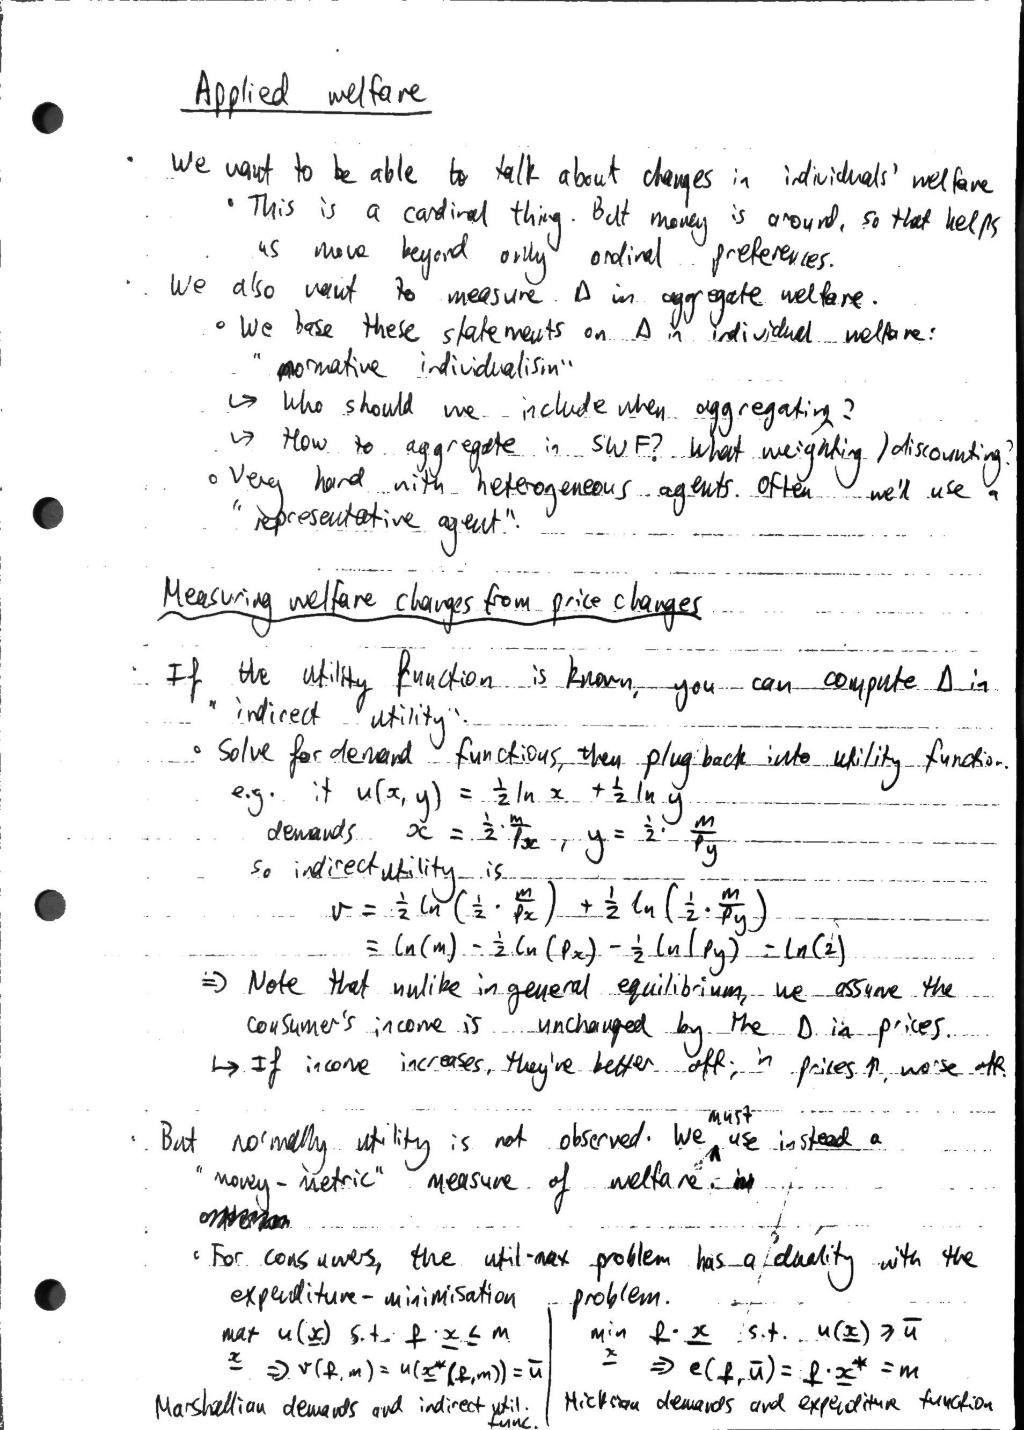 Applied welfare
• We want to be able to talk about changes in individuals' welfare
• This is a cardinal thing. But money is around, so that helps
us move beyond only ordinal preferences.
• We also want to measure Δ in aggregate welfare.
∘ We base these statements on Δ in individual welfare:
"normative individualism"
↳ Who should we include when aggregating?
↳ How to aggregate in SWF? What weighting / discounting?
∘ Very hard with heterogeneous agents. Often we'll use a
"representative agent".
Measuring welfare changes from price changes
• If the utility function is known, you can compute Δ in
"indirect utility".
∘ Solve for demand functions, then plug back into utility function.
e.g. if u(x, y) = ½ ln x + ½ ln y
demands x = ½ · m/px , y = ½ · m/py
so indirect utility is
v = ½ ln (½ · m/px) + ½ ln (½ · m/py)
= ln(m) - ½ ln(px) - ½ ln(py) - ln(2)
⇒ Note that unlike in general equilibrium, we assume the
consumer's income is unchanged by the Δ in prices.
↳ If income increases, they're better off; if prices ↑, worse off.
• But normally utility is not observed. We must use instead a
"money-metric" measure of welfare.
∘ For consumers, the util-max problem has a duality with the
expenditure-minimisation problem.
max u(x) s.t. p · x ≤ m | min p · x s.t. u(x) ≥ ū
x ⇒ v(p, m) = u(x*(p, m)) = ū | x ⇒ e(p, ū) = p · x* = m
Marshallian demands and indirect util. func. | Hicksian demands and expenditure function